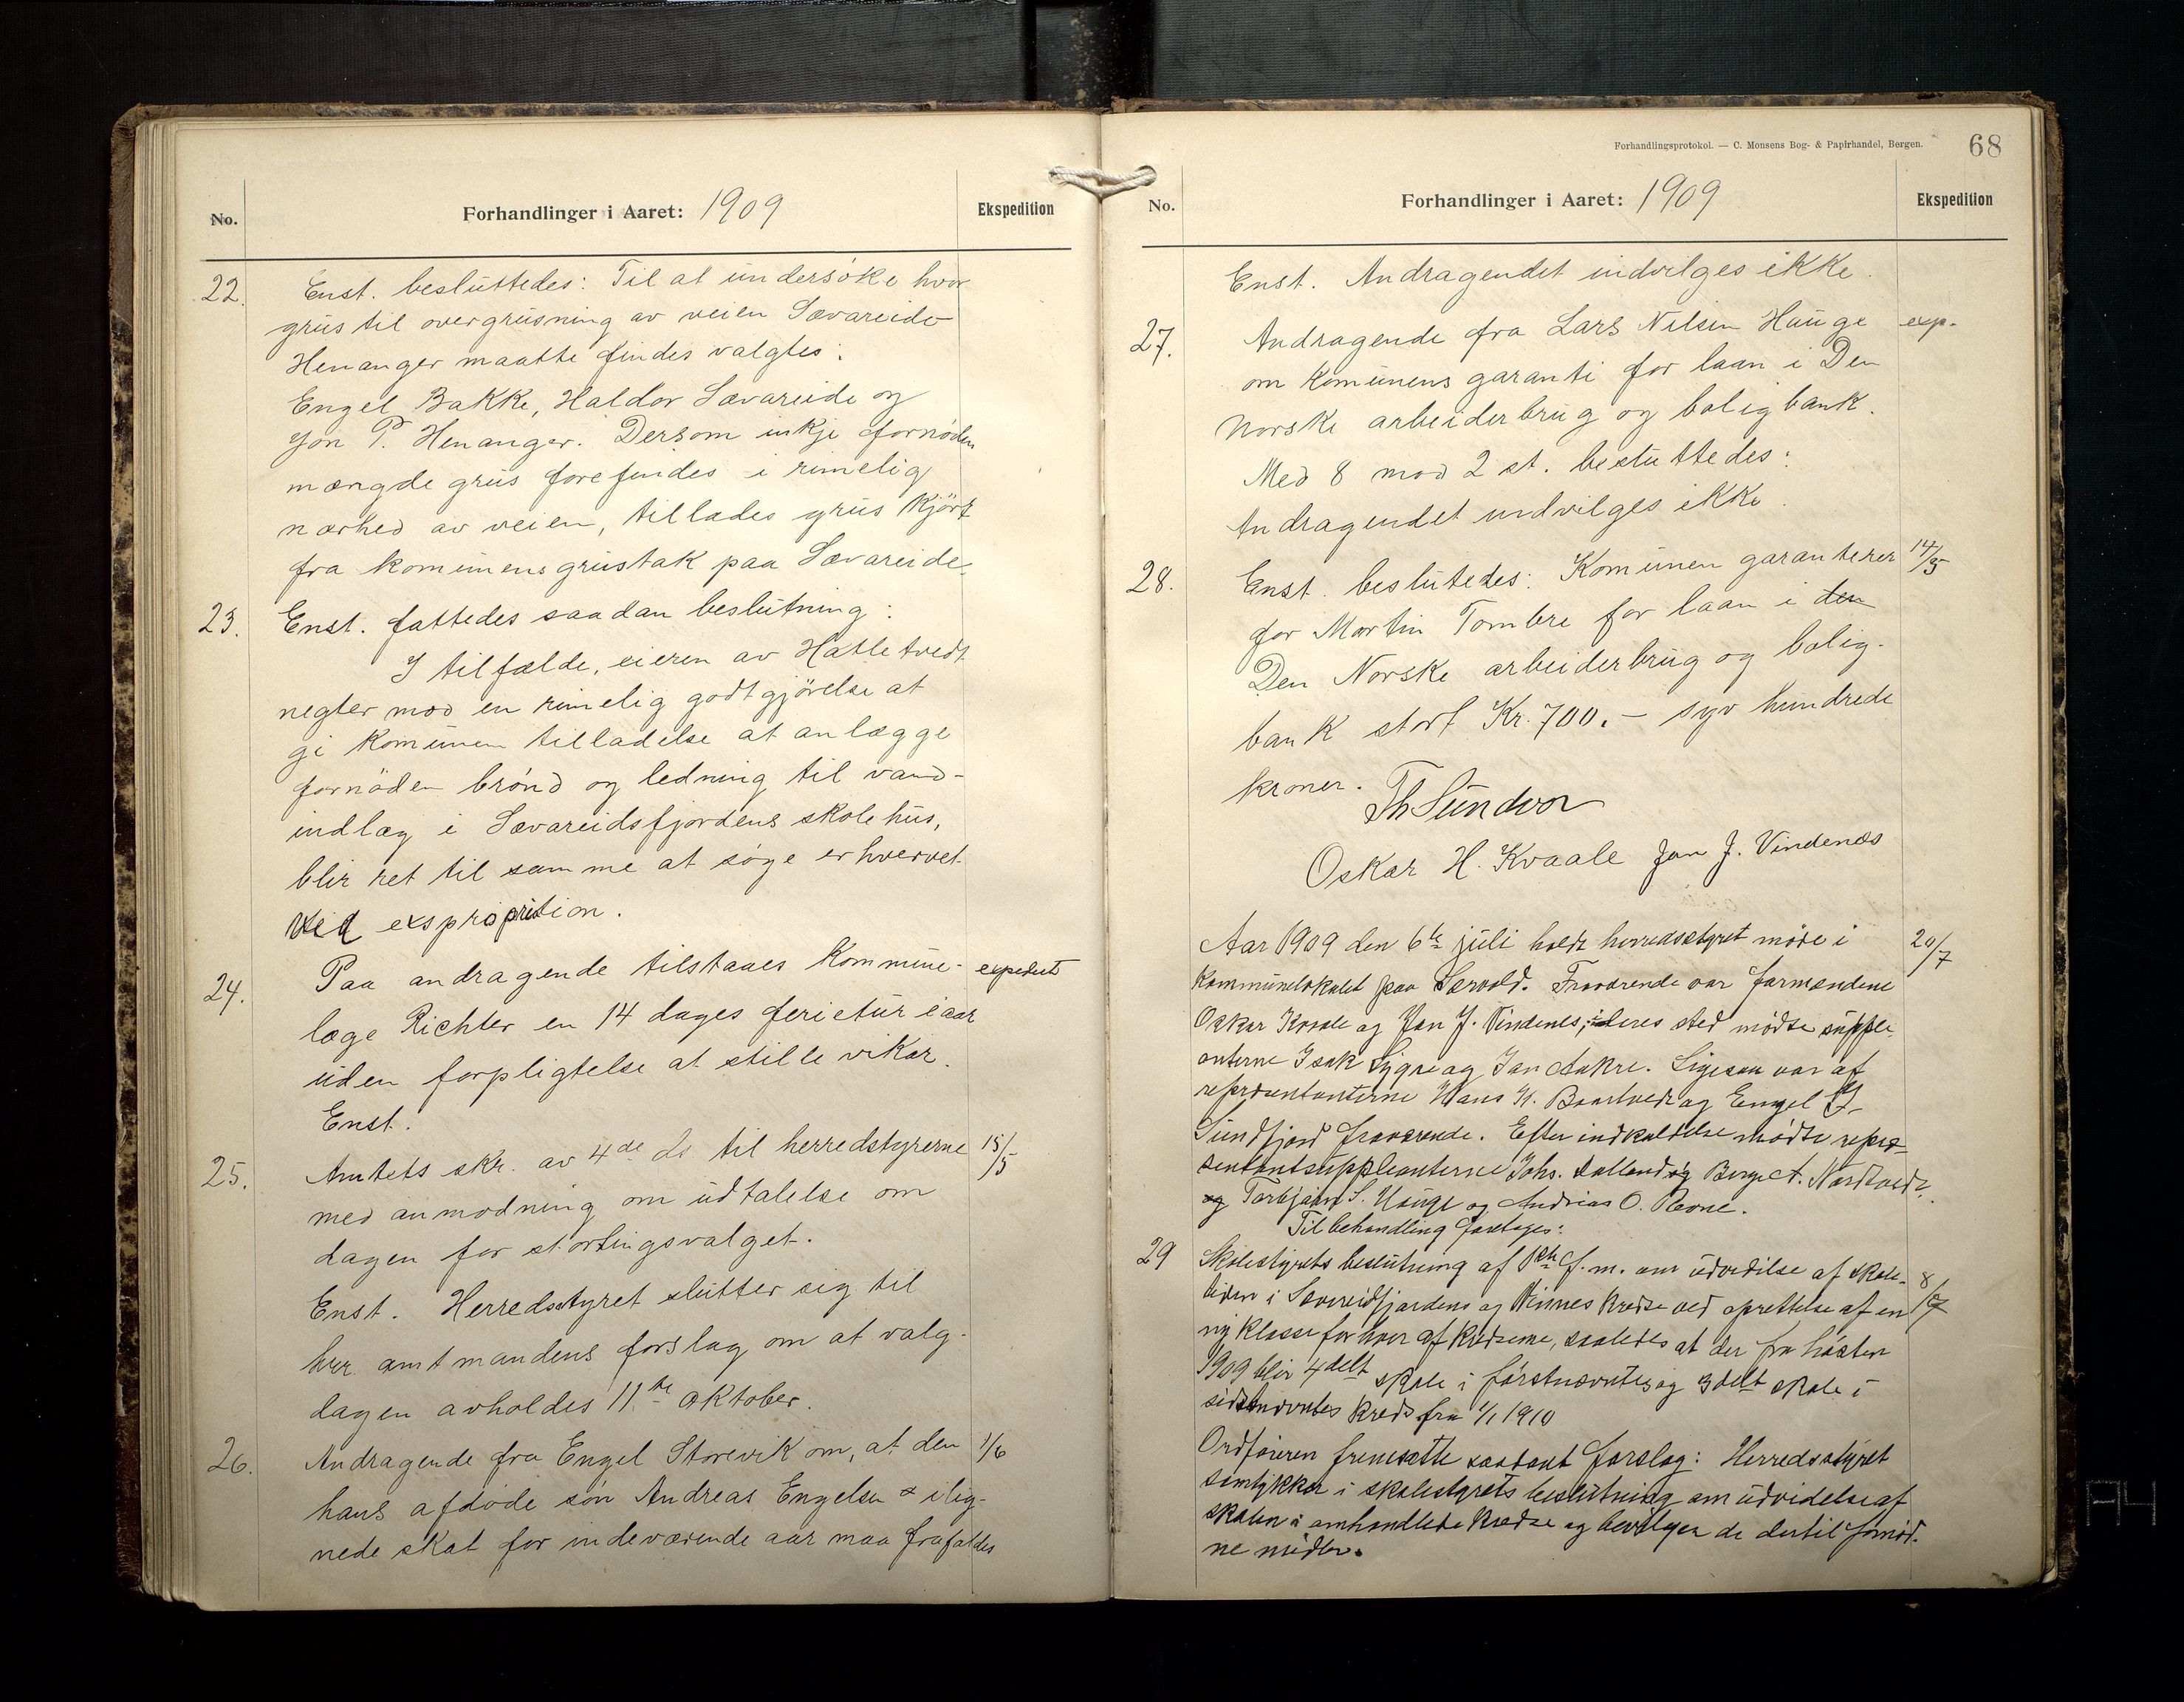 No.
Forhandlinger i Aaret: 1909
Ekspedition
22. Enst. besluttedes: Til at undersöke hvor
grus til overgrusning av veien Sævareide
Henanger maatte findes valgtes:
Engel Bakke, Haldor Sævareide og
Jon P. Henanger. Dersom inkje fornöden
mængde grus forefindes i rimelig
nærhed av veien, tillades grus kjört
fra komunens grustak paa Sævareide.
23. Enst. fattedes saadan beslutning:
I tilfælde, eieren av Hatletvedt
negter mod en rimelig godtgjörelse at
gi komunen tilladelse at anlægge
fornöden brönd og ledning til vand-
indlæg i Sævareidsfjordens skolehus,
blir ret til samme at söge erhvervet
ved expropriation.
24. Paa andragende tilstaaes kommune- expedert
læge Richter en 14 dages ferietur iaar
uden forpligtelse at stille vikar.
Enst.
25. Amtets skr. av 4de ds til herredstyrerne 15/5
med anmodning om udtalelse om
dagen for stortingsvalget.
Enst. Herredsstyret slutter sig til
hrr. amtmandens forslag om at valg-
dagen avholdes 11te oktober.
26. Andragende fra Engel Storevik om, at den 1/6
hans afdöde sön Andreas Engelsen ilig-
nede skat for indeværende aar maa frafaldes
Forhandlingsprotokol. — C. Monsens Bog- & Papirhandel, Bergen.
68
No.
Forhandlinger i Aaret: 1909
Ekspedition
Enst. Andragendet indvilges ikke.
27. Andragende fra Lars Nilsen Hauge exp.
om komunens garanti for laan i Den
norske arbeiderbrug og boligbank.
Med 8 mod 2 st. besluttedes:
Andragendet indvilges ikke.
28. Enst. beslutedes: Komunen garanterer 14/5
for Martin Tombre for laan i den
Den Norske arbeiderbrug og bolig-
bank stort Kr. 700.- syv hundrede
kroner.
Th Sundvor
Oskar H. Kvaale Jon J. Vindenæs
Aar 1909 den 6te juli holdt herredsstyret möde i 20/7
kommunelokalet paa Sævold. Fraværende var formændene
Oskar Kvaale og Jon J. Vindenes, i deres sted mödte supple-
anterne Isak Lygre og Jan Aakre. Ligesaa var af
repræsentanterne Hans H. Baartvedt og Engel J.
Sundfjord fraværende. Efter indkaldelse mödte repræ-
sentantsuppleanterne Johs. og Berge A. Nordtvedt
og Torbjørn S. Hauge og Andreas O. Revne.
Til behandling foretages:
29 Skolestyrets beslutning af f.m. om udvidelse af skole- 8/7
tiden i Sævareidfjordens og Vinnes kredse ved oprettelse af en
ny klasse for hver af kredsene, saaledes at der fra hösten
1909 blir 4delt skole i förstnævntes og 3delt skole i
sidstnævntes kreds fra 1/1 1910
Ordföreren fremsatte saadant forslag: Herredsstyret
samtykker i skolestyrets beslutning om udvidelse af
skolen i omhandlede kredse og bevilger de dertil fornöd-
ne midler.